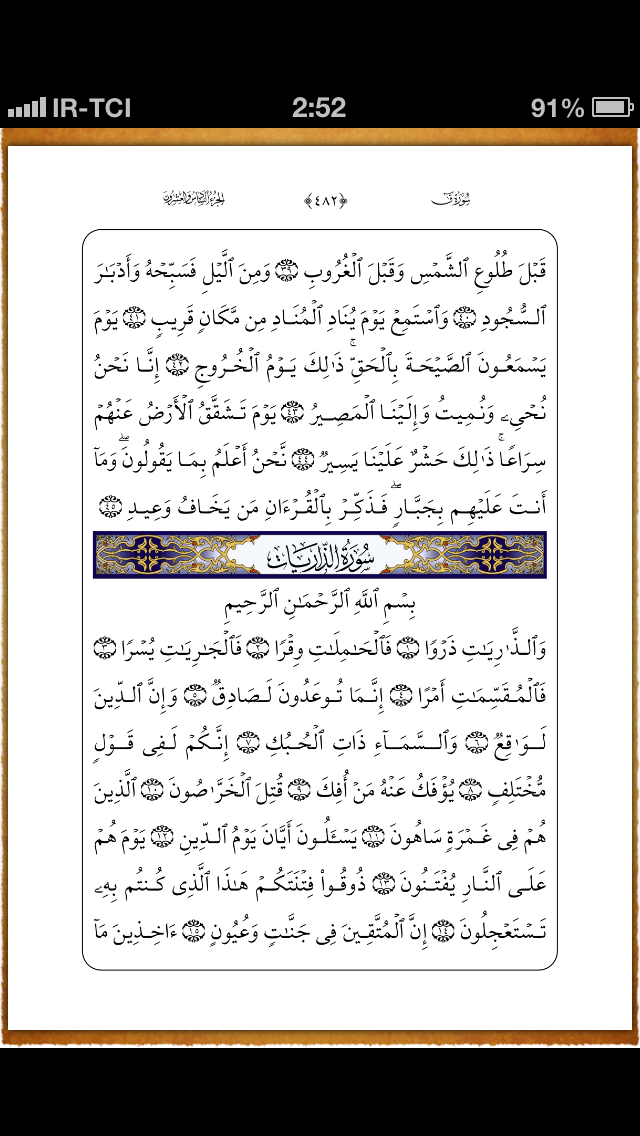 IR-TCI 2:52 91%
سُورَةُ قٓ ﴿٤٨٢﴾ الجُزءُ السَّادِسُ وَالعِشرُونَ
قَبۡلَ طُلُوعِ ٱلشَّمۡسِ وَقَبۡلَ ٱلۡغُرُوبِ ٣٩ وَمِنَ ٱلَّيۡلِ فَسَبِّحۡهُ وَأَدۡبَٰرَ
ٱلسُّجُودِ ٤٠ وَٱسۡتَمِعۡ يَوۡمَ يُنَادِ ٱلۡمُنَادِ مِن مَّكَانٍ قَرِيبٍ ٤١ يَوۡمَ
يَسۡمَعُونَ ٱلصَّيۡحَةَ بِٱلۡحَقِّۚ ذَٰلِكَ يَوۡمُ ٱلۡخُرُوجِ ٤٢ إِنَّا نَحۡنُ
نُحۡيِۦ وَنُمِيتُ وَإِلَيۡنَا ٱلۡمَصِيرُ ٤٣ يَوۡمَ تَشَقَّقُ ٱلۡأَرۡضُ عَنۡهُمۡ
سِرَاعًاۚ ذَٰلِكَ حَشۡرٌ عَلَيۡنَا يَسِيرٌ ٤٤ نَّحۡنُ أَعۡلَمُ بِمَا يَقُولُونَۖ وَمَآ
أَنتَ عَلَيۡهِم بِجَبَّارٍۖ فَذَكِّرۡ بِٱلۡقُرۡءَانِ مَن يَخَافُ وَعِيدِ ٤٥
سُورَةُ الذَّارِيَاتِ
بِسۡمِ ٱللَّهِ ٱلرَّحۡمَٰنِ ٱلرَّحِيمِ
وَٱلذَّٰرِيَٰتِ ذَرۡوًا ١ فَٱلۡحَٰمِلَٰتِ وِقۡرًا ٢ فَٱلۡجَٰرِيَٰتِ يُسۡرًا ٣
فَٱلۡمُقَسِّمَٰتِ أَمۡرًا ٤ إِنَّمَا تُوعَدُونَ لَصَادِقٌ ٥ وَإِنَّ ٱلدِّينَ
لَوَٰقِعٌ ٦ وَٱلسَّمَآءِ ذَاتِ ٱلۡحُبُكِ ٧ إِنَّكُمۡ لَفِي قَوۡلٍ
مُّخۡتَلِفٍ ٨ يُؤۡفَكُ عَنۡهُ مَنۡ أُفِكَ ٩ قُتِلَ ٱلۡخَرَّٰصُونَ ١٠ ٱلَّذِينَ
هُمۡ فِي غَمۡرَةٍ سَاهُونَ ١١ يَسۡـَٔلُونَ أَيَّانَ يَوۡمُ ٱلدِّينِ ١٢ يَوۡمَ هُمۡ
عَلَى ٱلنَّارِ يُفۡتَنُونَ ١٣ ذُوقُواْ فِتۡنَتَكُمۡ هَٰذَا ٱلَّذِي كُنتُم بِهِۦ
تَسۡتَعۡجِلُونَ ١٤ إِنَّ ٱلۡمُتَّقِينَ فِي جَنَّٰتٍ وَعُيُونٍ ١٥ ءَاخِذِينَ مَآ